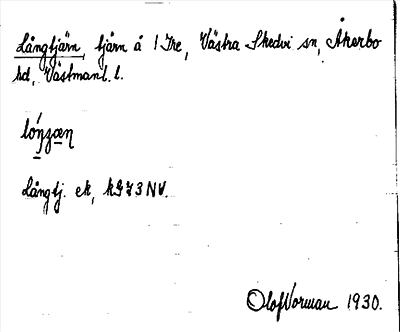 Långtjärn, tjärn å 1 Tre, Västra Skedvi sn, Åkerbo
hd, Västmanl. l.
Långtj. ek, kG 73 NV.
Olof Vorman 1930.